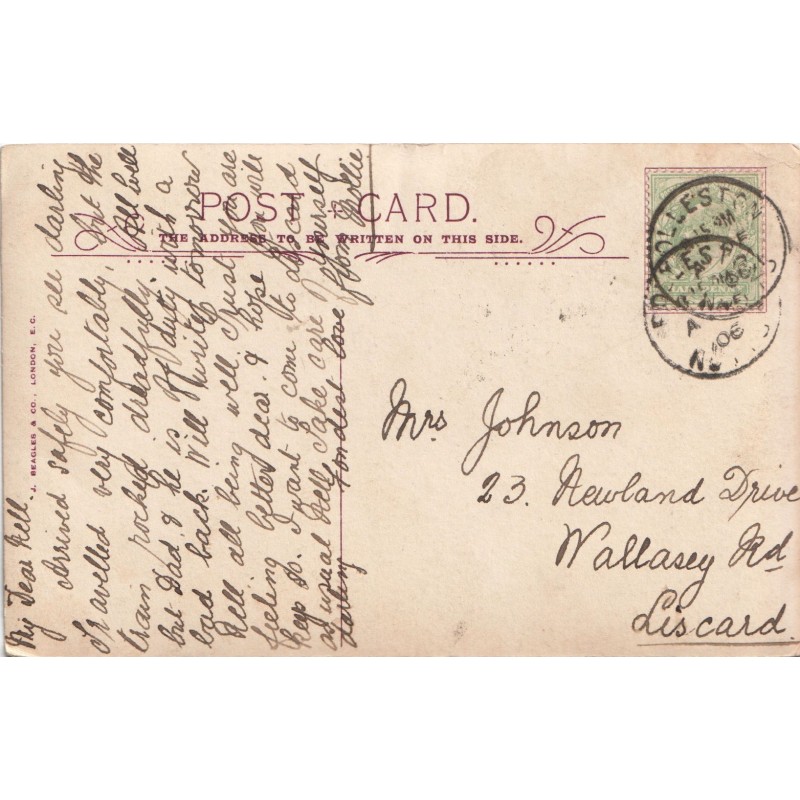 POST CARD.
THE ADDRESS TO BE WRITTEN ON THIS SIDE.
J. BEAGLES & CO., LONDON, E.C.
My Dear Nell.
Arrived safely you see darling
Travelled very comfortably, but the
train rocked dreadfully. All well
but Dad. & he is off duty with a
bad back. Will write tomorrow
Nell. all being well. Trust you are
feeling better dear. & hope you will
keep so. I want to come to
as usual Nell. Take care of yourself
darling Fondest love from
HALFPENNY
ROLLESTON
06
Mrs Johnson
23. Newland Drive
Wallasey Rd
Liscard.